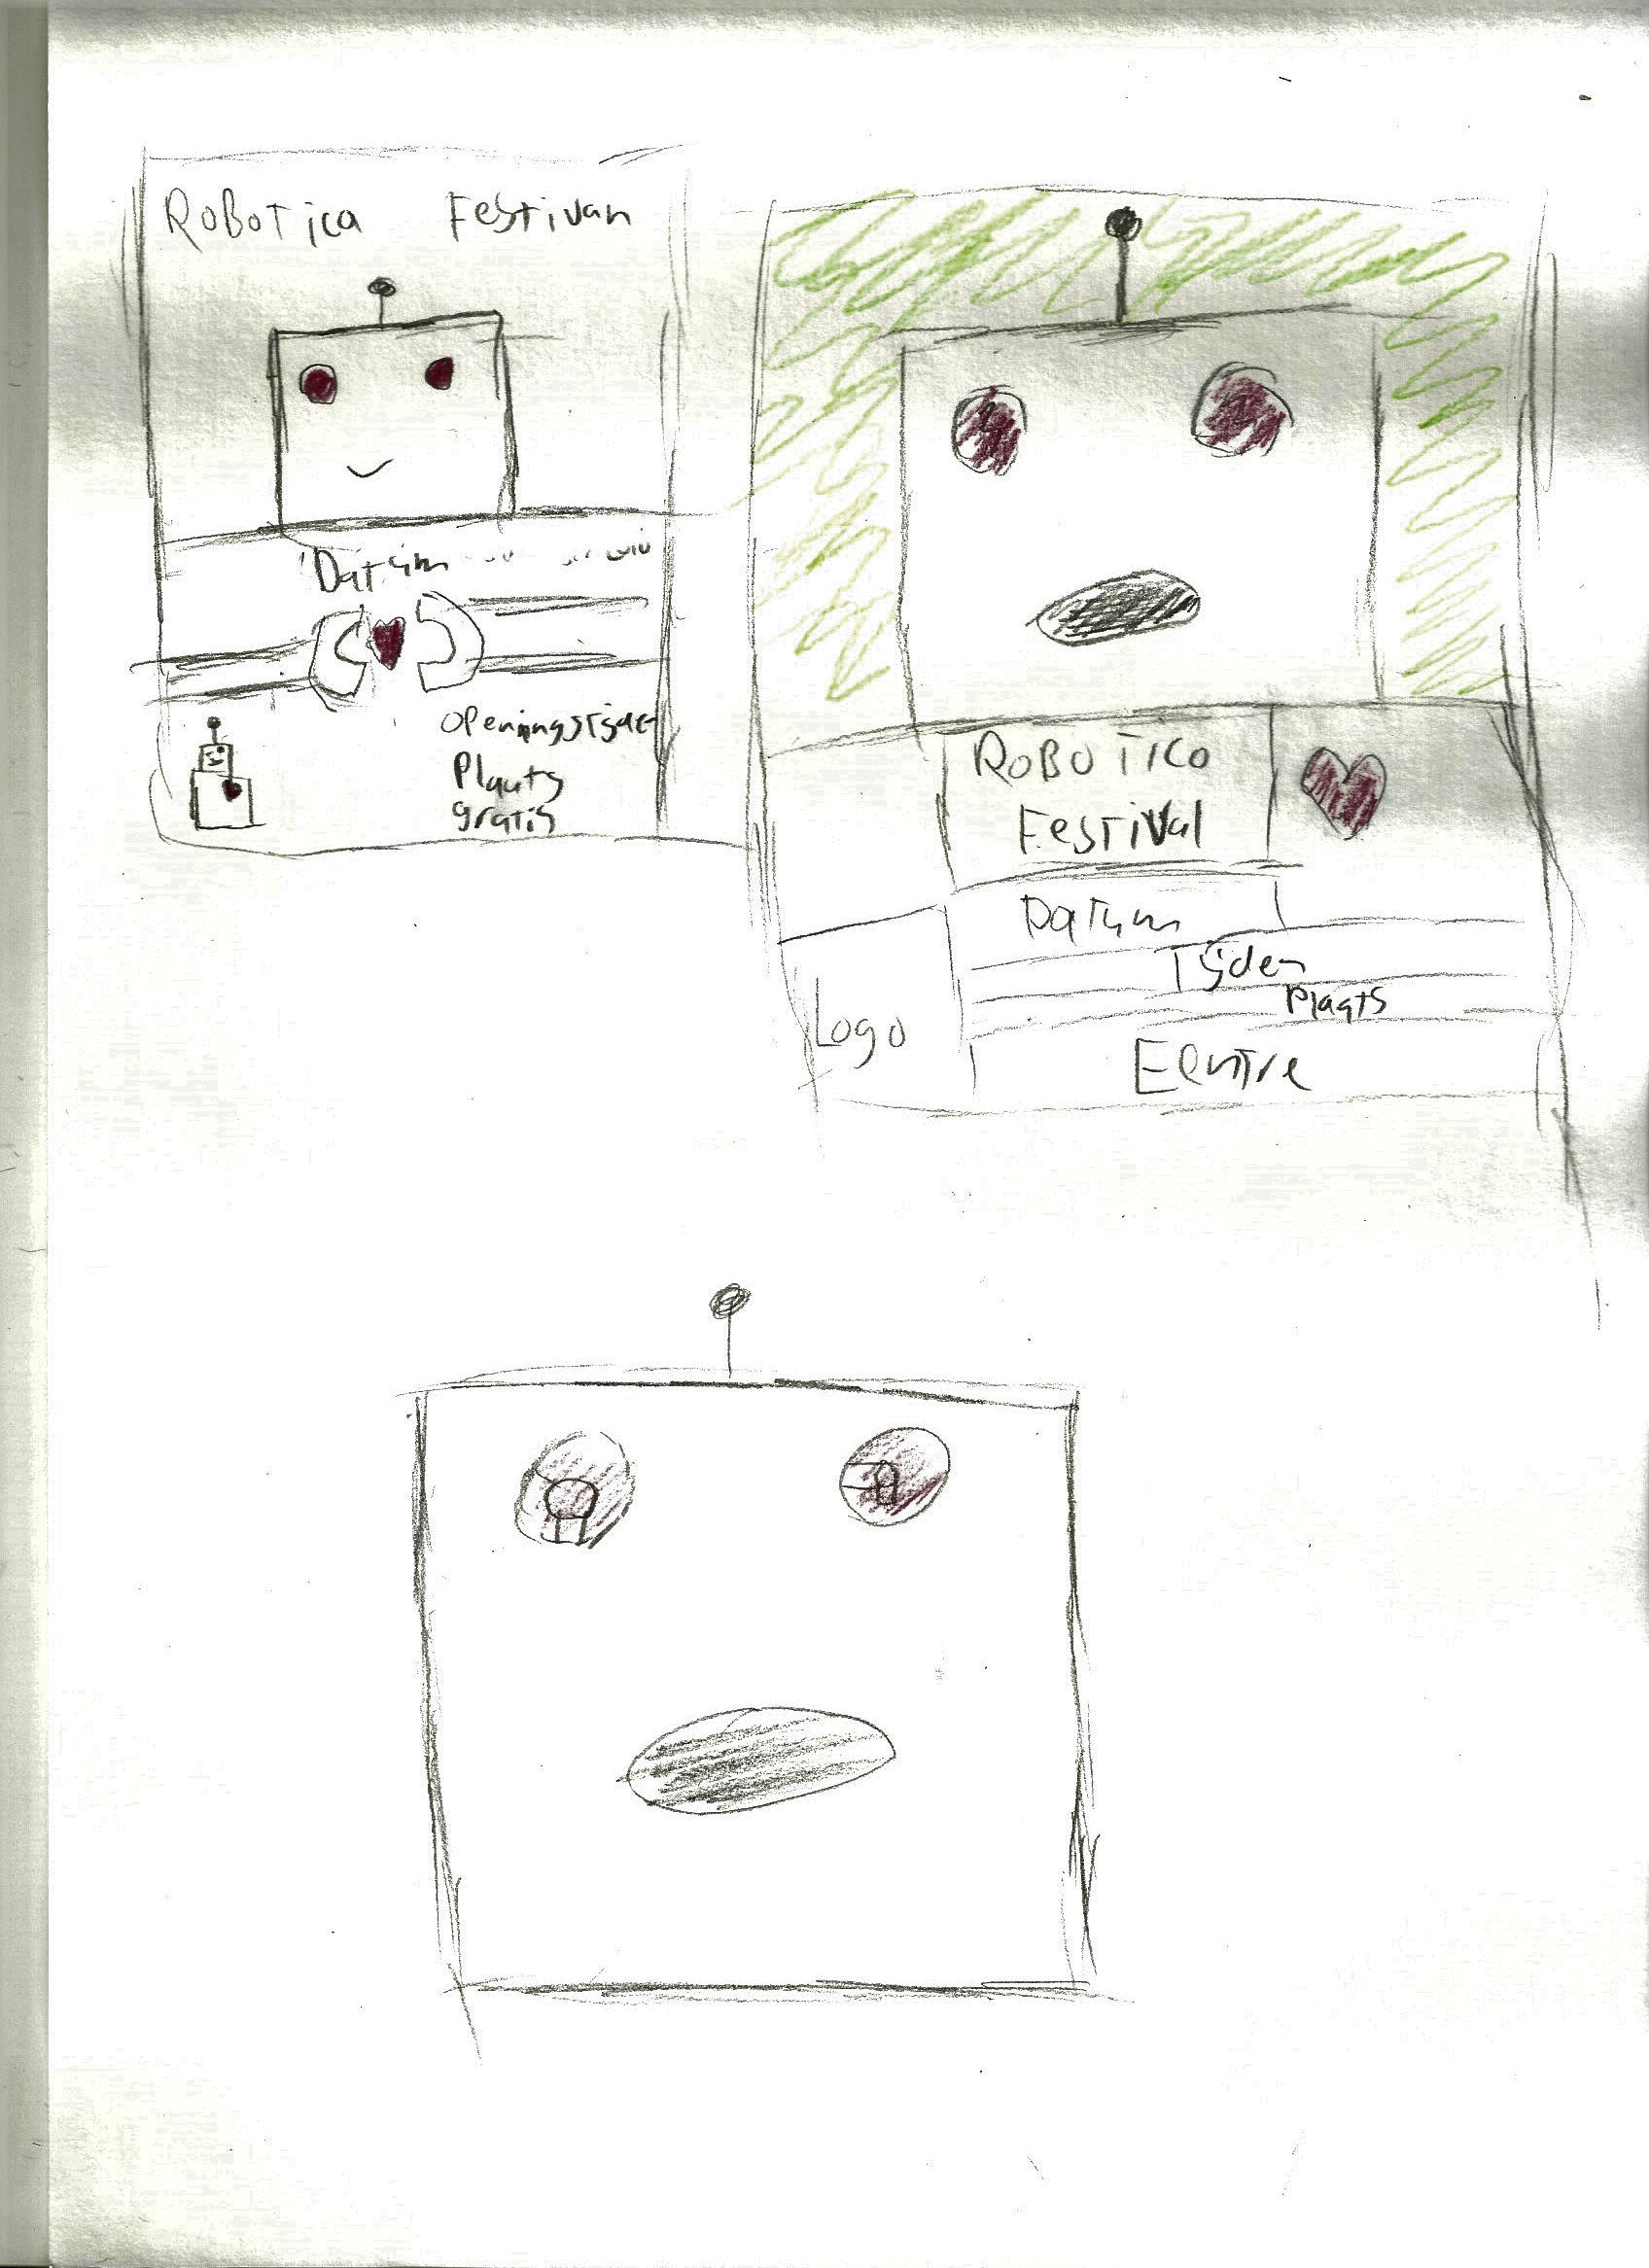 RoBoTica Festivan
Datum
openingstijden
Plaats
gratis
RoBoTica
Festival
Datum
Tijden
Plaats
Logo
Eentre